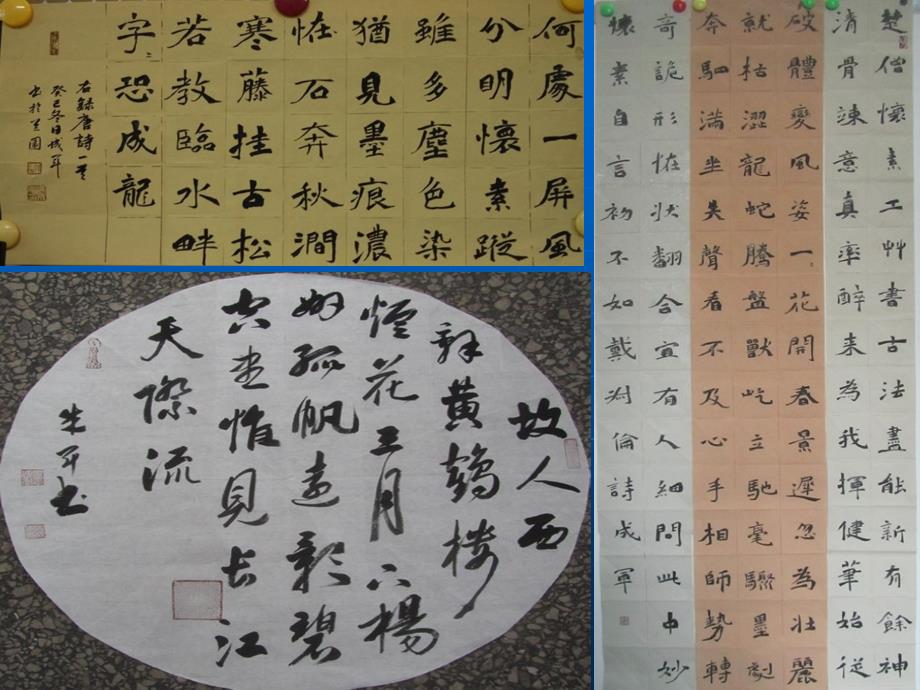 何處一屏風
分明懷素蹤
雖多塵色染
猶見墨痕濃
恠石奔秋澗
寒藤挂古松
若教臨水畔
字〻恐成龍
右録唐詩一首
癸巳冬日成軍
故人西
辞黄鶴楼
煙花三月下楊
州孤帆遠影碧
空盡惟見長江
天際流
朱平书
楚僧懷素工艸書古法盡能新有餘神
清骨竦意真率醉来為我揮健筆始從
破體變風姿一〻花開春景遲忽為壯麗
就枯澀龍蛇騰盤獸屹立馳毫驟墨劇
奔駟滿坐失聲看不及心手相師勢轉
奇詭形恠狀翻合宜有人細問此中妙
懷素自言初不如戴叔倫詩成軍